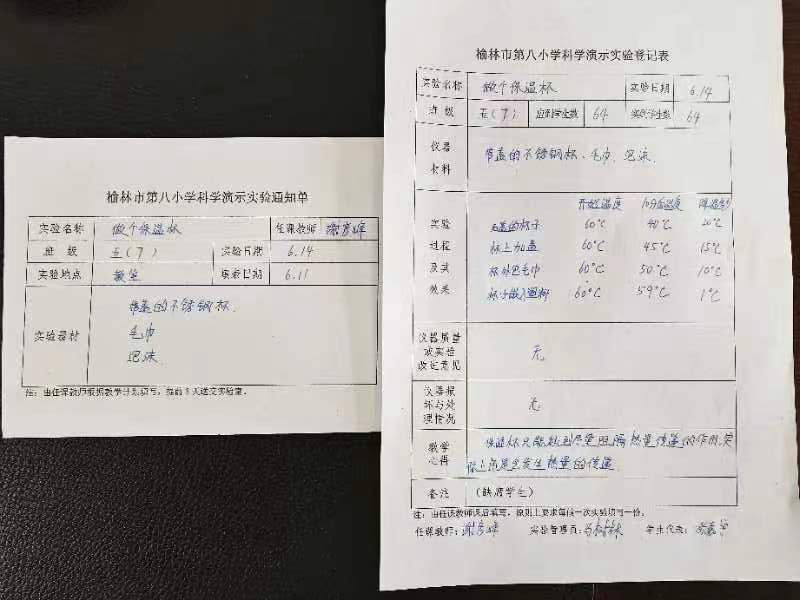 榆林市第八小学科学演示实验通知单
实验名称 做个保温杯 任课教师
班 级 五(7) 实验日期 6.14
实验地点 教室 填表日期 6.11
实验器材
带盖的不锈钢杯.
毛巾
泡沫
注:由任课教师根据教学计划填写,提前3天送交实验室。
榆林市第八小学科学演示实验登记表
实验名称 做个保温杯 实验日期 6.14
班 级 五(7) 应到学生数 64 实到学生数 64
仪器材料 带盖的不锈钢杯、毛巾、泡沫.
实验过程及其效果
开始温度 10分后温度 降温
无盖的杯子 60℃ 40℃ 20℃
杯上加盖 60℃ 45℃ 15℃
杯外包毛巾 60℃ 50℃ 10℃
杯子嵌入 60℃ 59℃ 1℃
仪器质量或实验改定意见 无
仪器损坏与处理情况 无
教学心得 保温杯只能起到尽量阻隔热量传递的作用,实
际上总是会发生热量的传递.
备注 (缺席学生)
注:由任课教师课后填写,原则上要求每做一次实验填写一份。
任课教师: 实验管理员: 学生代表: